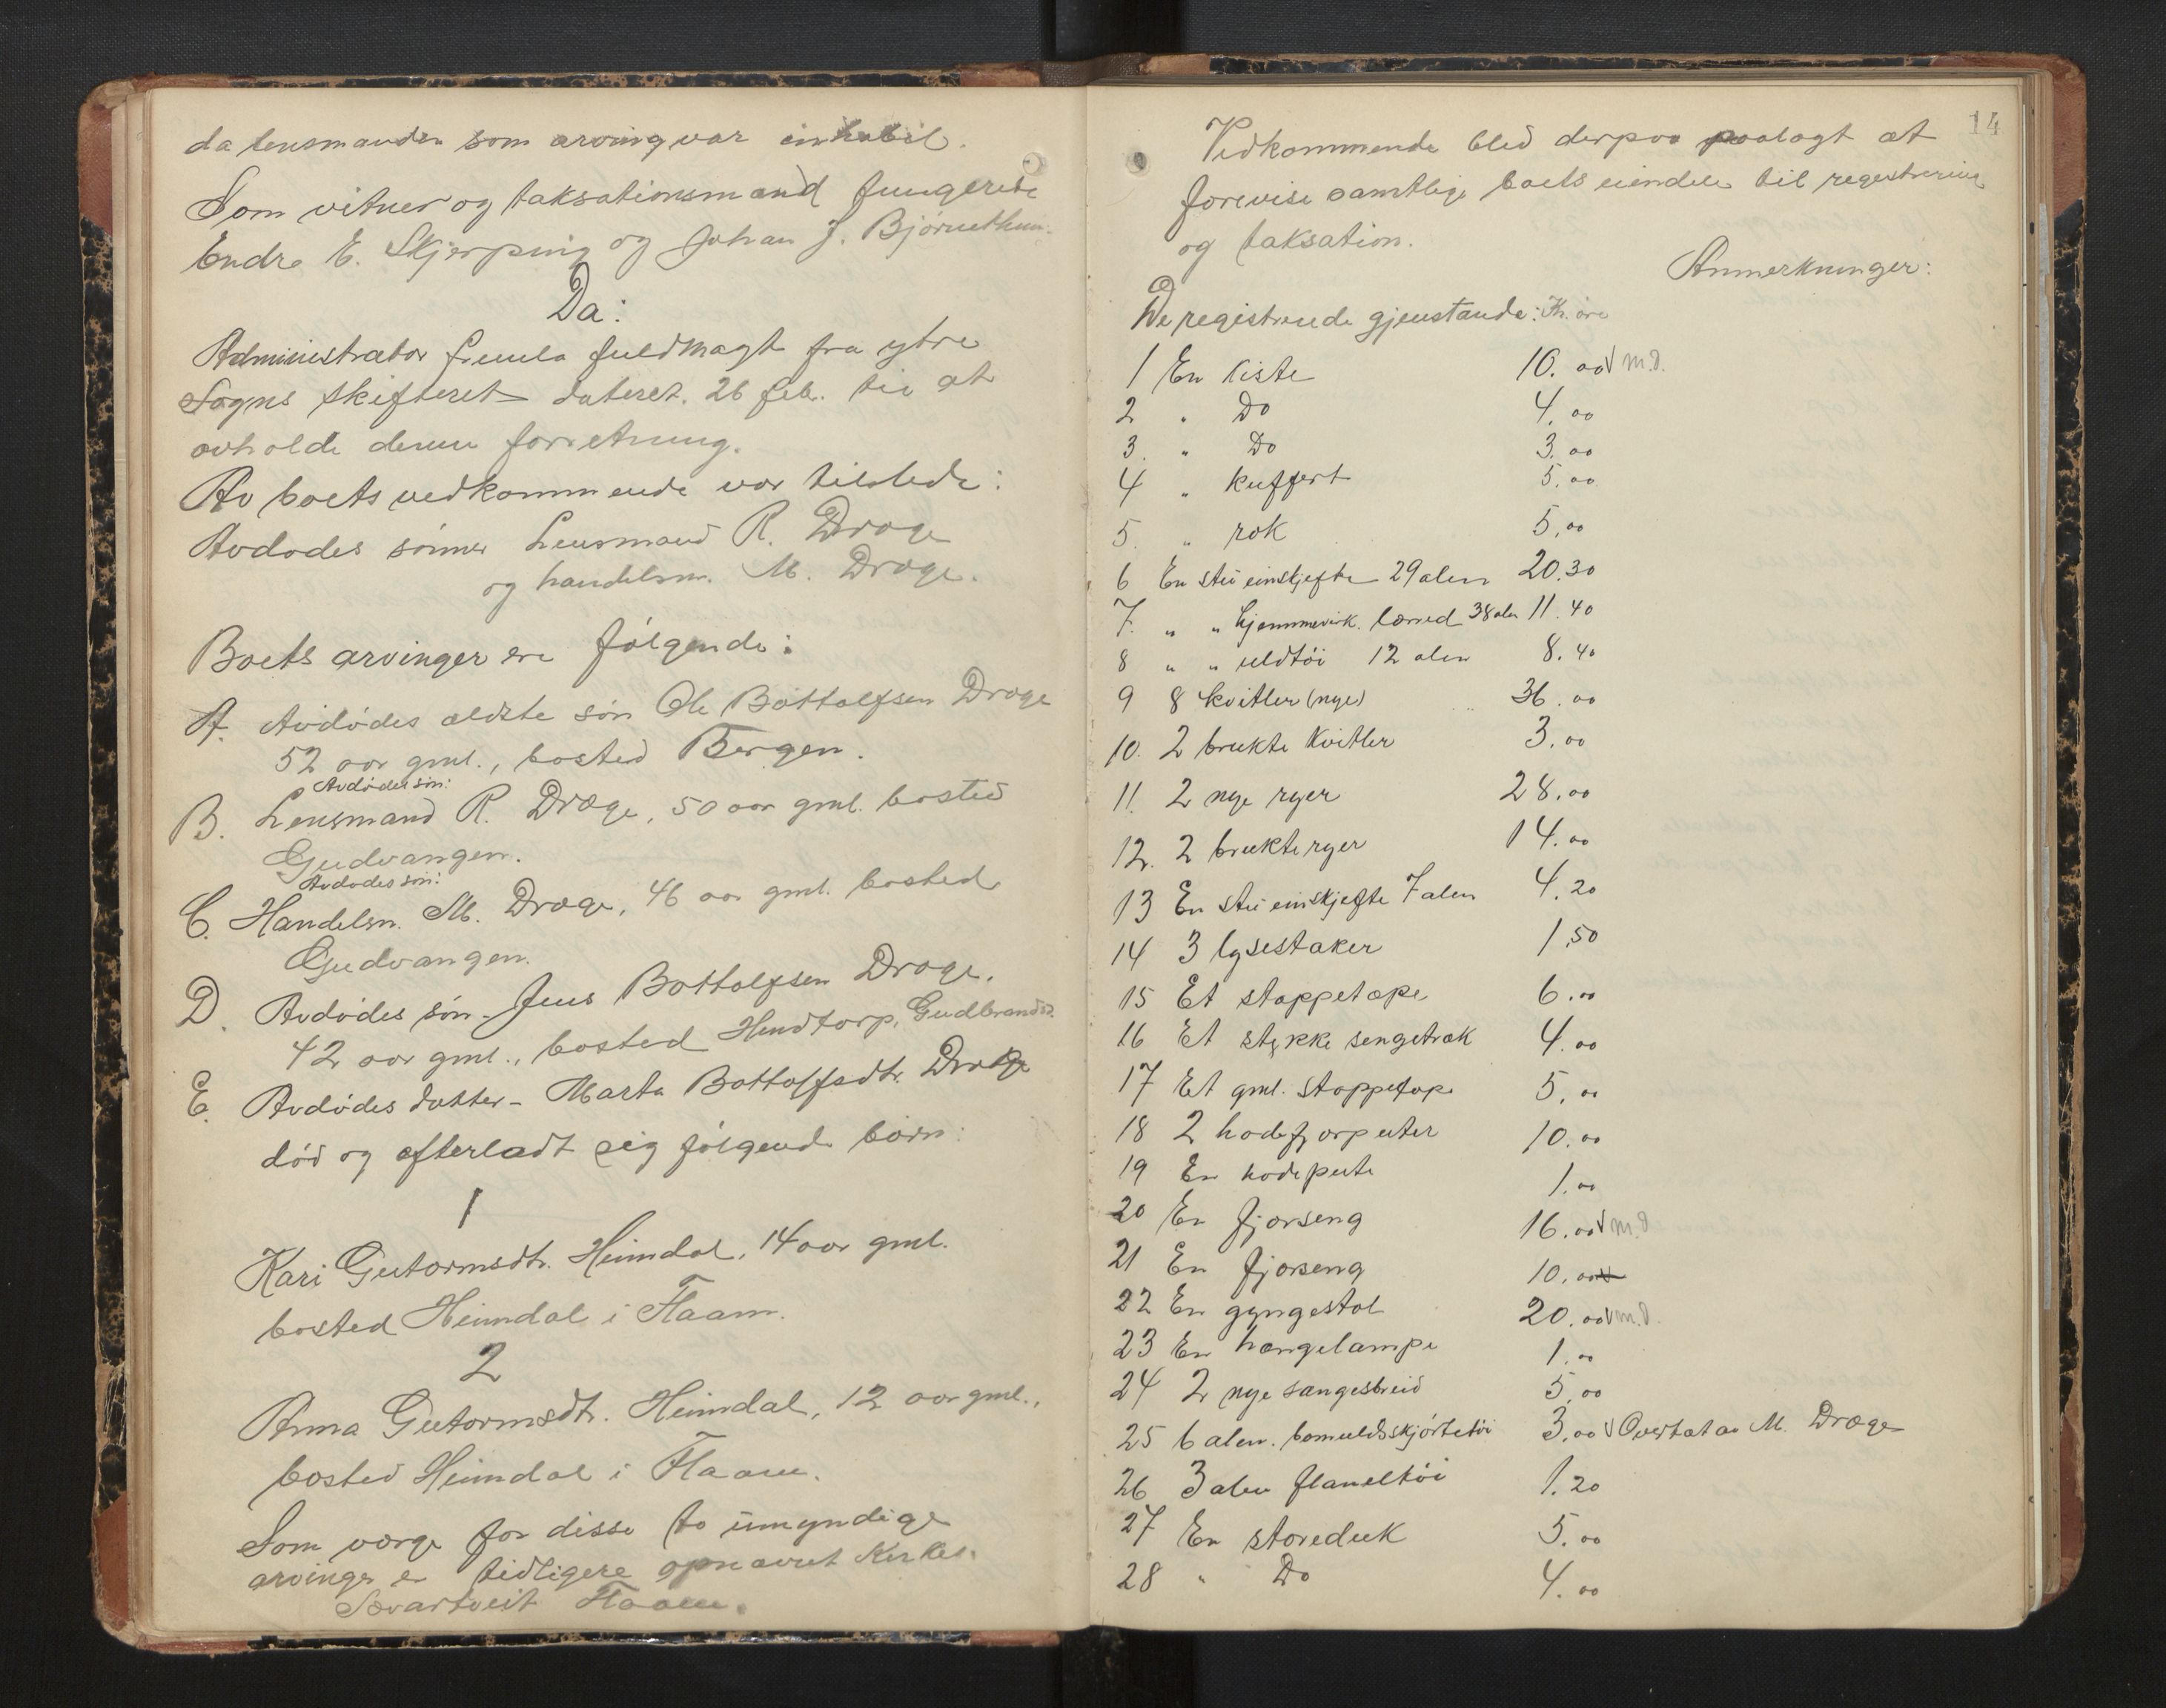 da lensmanden som arving var inhabil.
Som vitner og taksationsmænd fungerede
Endre E. Skjerping og Johan J.
Da:
Administrator fremla fuldmagt fra ytre
Sogns skifteret dateret. 26 feb. til at
avholde denne forretning.
Av boets vedkommende var tilstede:
Avdødes sønner Lensmand R. Dræge
og handelsm. M. Dræge.
Boets arvinger ere følgende:
A. Avdødes ældste søn Ole Bottolfsen Dræge
52 aar gml., bosted Bergen.
Avdødes søn:
B. Lensmand R. Dræge, 50 aar gml. bosted
Gudvangen.
Avdødes søn:
C. Handelsm. M. Dræge, 46 aar gml. bosted
Gudvangen.
D. Avdødes søn - Jens Bottolfsen Dræge.
42 aar gml., bosted Hundtorp, Gudbrandsd.
E. Avdødes datter - Marta Bottolfsdtr. Dræge
død og efterladt sig følgende børn:
1
Kari Gutormsdtr. Heimdal, 14 aar gml.
bosted Heimdal i Flaam.
2
Anna Gutormsdtr. Heimdal, 12 aar gml.,
bosted Heimdal i Flaam.
Som værge for disse to umyndige
arvinger er tidligere opnævnt
Flaam.
14
Vedkommende blev derpaa paalagt at
forevise samtlige boets eiendele til registrering
og taksation.
Anmerkninger:
De registrerede gjenstande: Kr. øre
1 En kiste 10.00 V M.D.
2 " Do 4.00
3. " Do 3.00
4 " kuffert 5.00
5. " rok 5.00
6 En stu einskjefte 29 alen 20.30
7. " " hjemmevirk. lærred 38 alen 11.40
8 " " uldtøi 12 alen 8.40
9 8 kvitler (nye) 36.00
10. 2 brukte kvitler 3.00
11. 2 nye ryer 28.00
12. 2 brukte ryer 14.00
13 En stu einskjefte 7 alen 4.20
14 3 lysestaker 1.50
15 Et stoppetæpe 6.00
16 Et stykke sengetræk 4.00
17 Et gml. stoppetæpe 5.00
18 2 hodefjærputer 10.00
19 En hodepute 1.00
20 En fjærseng 16.00 V M.D
21 En fjærseng 10.00
22 En gyngestol 20.00 V M.D.
23 En hængelampe 1.00
24 2 nye sængesbreid 5.00
25 6 alen. bomuldsskjørtetøi 3.00 V Overtat av M. Dræge
26 3 alen flaneltøi 1.20
27 En storeduk 5.00
28 " Do 4.00